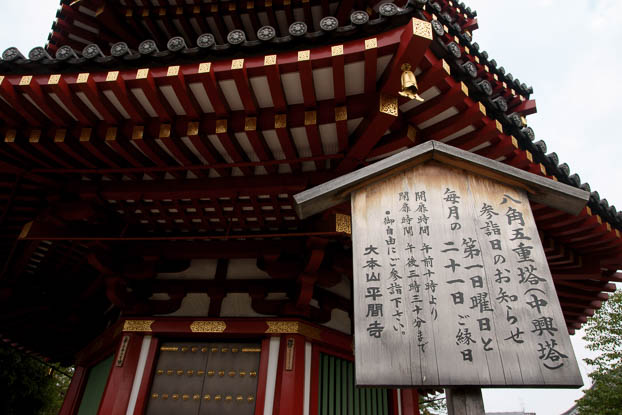 八角五重塔(中興塔)
参詣日のお知らせ
第一日曜日と
毎月の二十一日ご縁日
開扉時間 午前十時より
閉扉時間 午後三時三十分まで
・御自由にご参詣下さい。
大本山平間寺